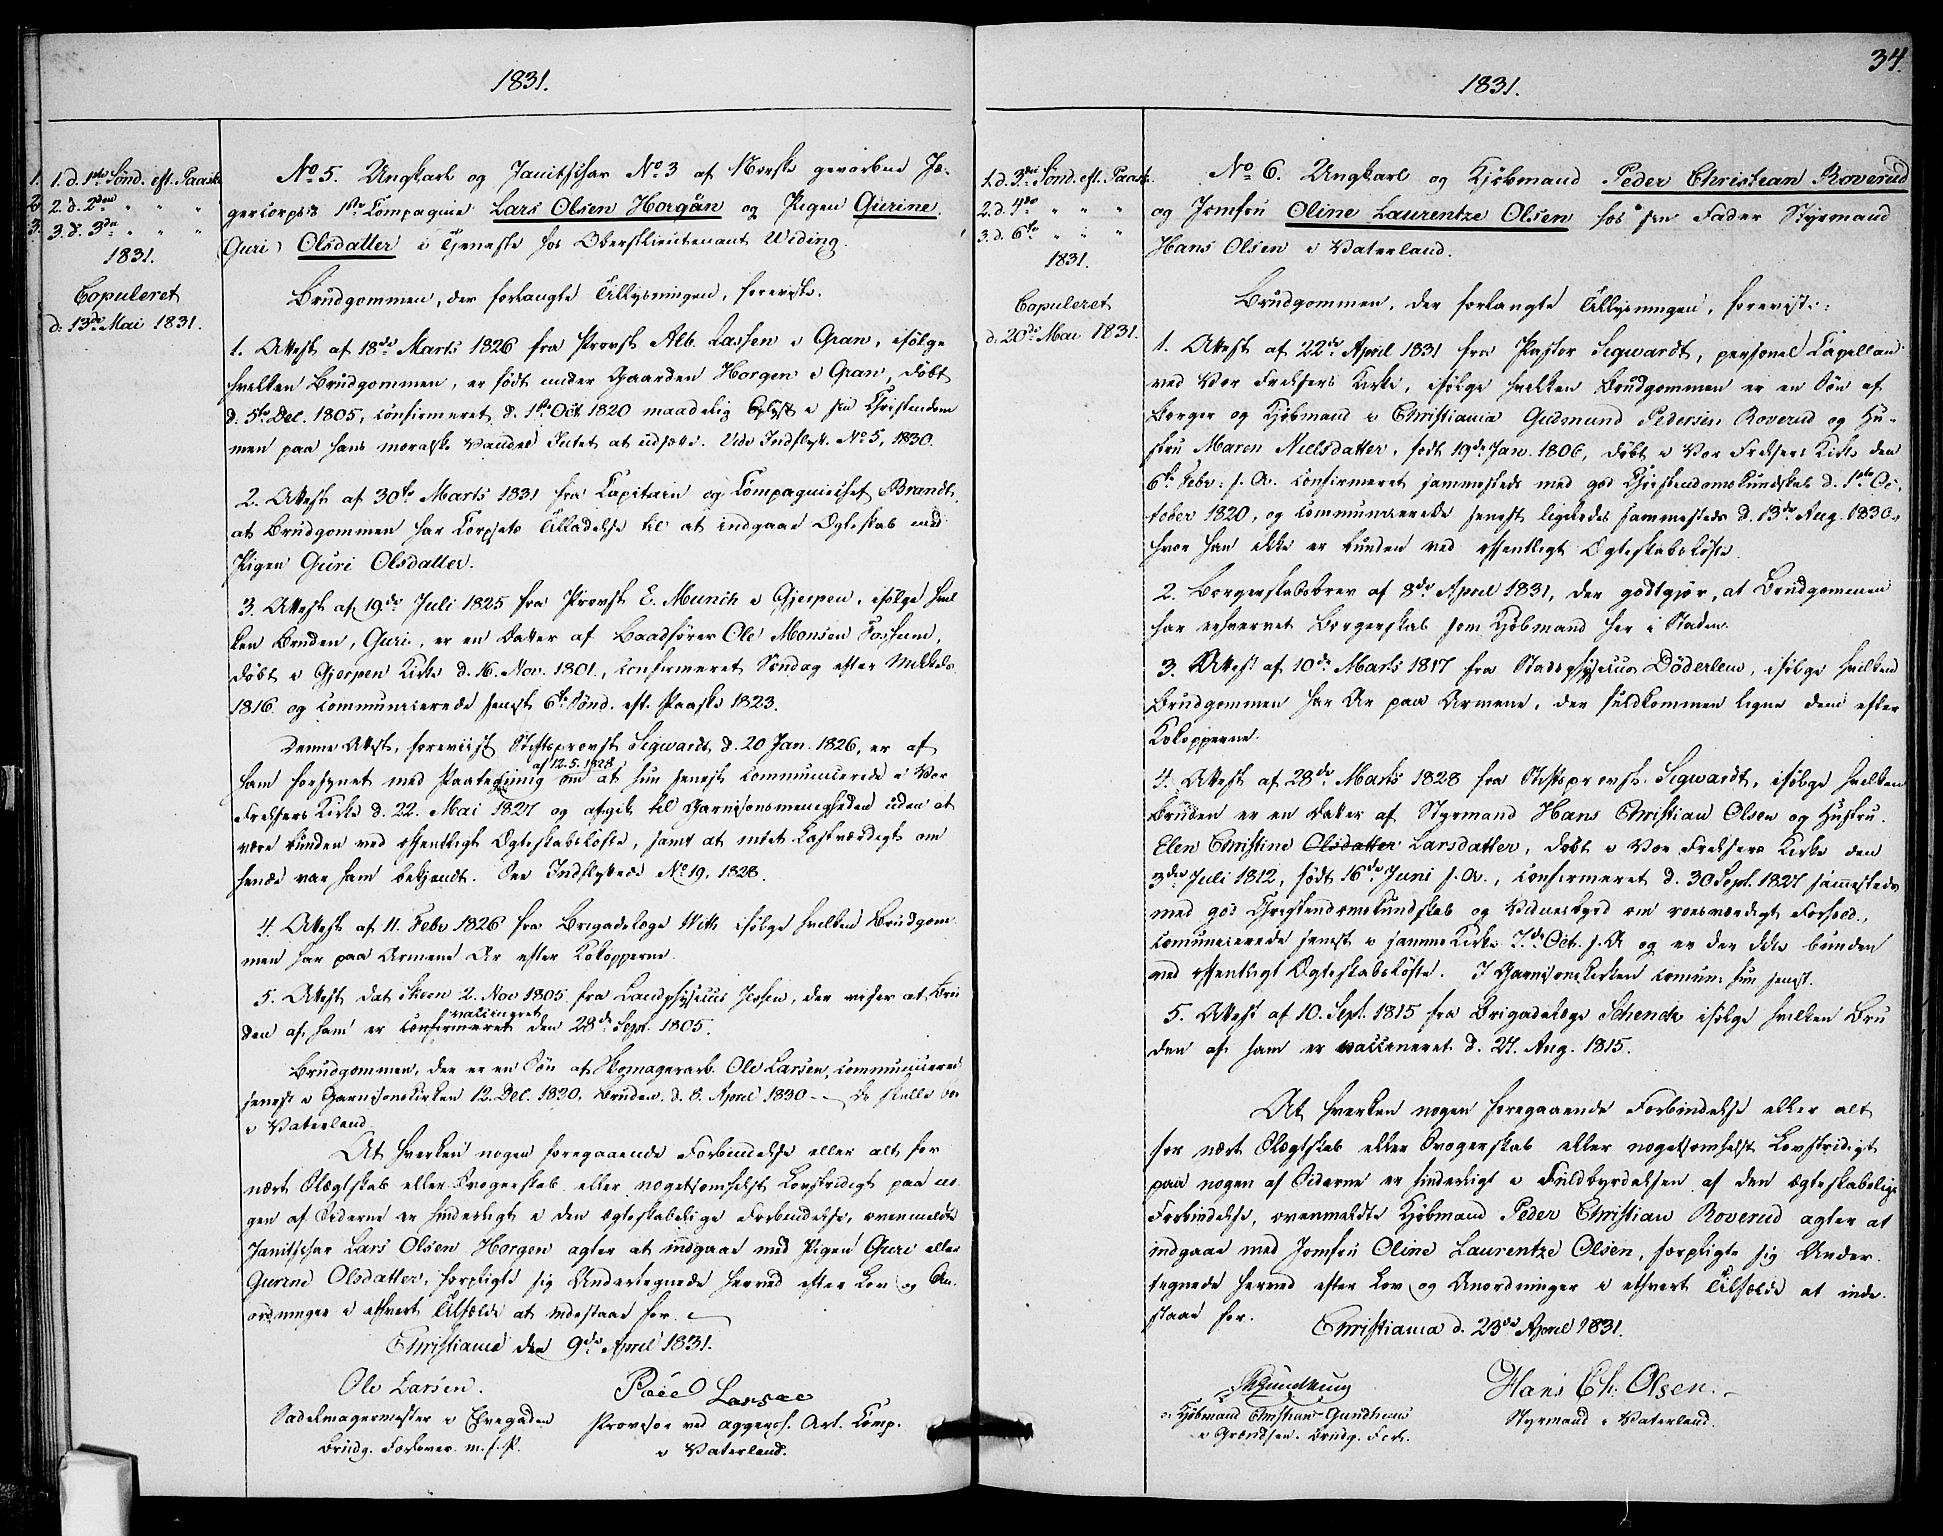 1831.
1. d. 1ste Sønd. eft. Paaske
2. d. 2den " " "
3. d. 3die " " "
1831.
Copuleret
d. 13de Mai 1831.
No 5. Ungkarl og Janitschar No 3 af Norske gevorbne Jæ-
gercorps's 1ste Compagnie Lars Olsen Horgån og Pigen Gurine
(Guri) Olsdatter i Tjeneste hos Oberstlieutenant Weding.
Brudgommen, der forlangte Tillysningen, foreviste.
1. Attest af 18de Marts 1826 fra Provst Alb. Lassen i Gran, ifølge
hvilken Brudgommen, er født under Gaarden Horgen i Gran, døbt
d. 5te Dec. 1805, confirmeret d. 1ste Oct. 1820 maadelig oplyst i sin Christendom
men paa hans moralske Vandel Intet at udsætte. Vide Indflyt. No 5, 1830.
2. Attest af 30te Marts 1831 fra Capitain og Compagniechef Brandt,
at Brudgommen har Corpsets Tilladelse til at indgaae Ægteskab med
Pigen Guri Olsdatter.
3. Attest af 19de Juli 1825 fra Provst E. Munch i Gjerpen, ifølge hvil-
ken Bruden, Guri, er en Datter af Baadfører Ole Monsen Fossum,
døbt i Gjerpen Kirke d. 16. Nov. 1801, confirmeret Søndag efter Mikkels
1816 og communicerede senest 6te Sønd. eft. Paaske 1823.
Denne Attest, foreviist Stiftsprovst Sigwardt d. 20 Jan. 1826, er af
af 12.5.1828
ham forsynet med Paategning om at hun senest communicerede i Vor
Frelsers Kirke d. 22. Mai 1827 og afgik til Garnisonsmenigheden uden at
være bunden ved offentligt Ægteskabsløfte, samt at intet Lastværdigt om
hende var ham bekjendt. See Indflyttede No 19, 1828.
4. Attest af 11. Febr 1826 fra Brigadelæge With ifølge hvilken Brudgom-
men har paa Armene Ar efter Kokopperne.
5. Attest dat Skeen 2. Nov 1805 fra Landphysicus Jessen, der viser at Bru
vaccineret
den af ham er confirmeret den 28de Sept. 1805.
Brudgommen, der er en Søn af Skomagerarb. Ole Larsen, communicerede
senest i Garnisonskirken 12. Dec. 1830, Bruden d. 8. April 1830 — De skulle boe
i Vaterland
At hverken nogen foregaaende Forbindelse eller alt for
nært Slægtskab eller Svogerskab eller nogetsomhelst Lovstridigt paa no
gen af Siderne er hinderligt i den ægteskabelige Forbindelse, ovenmeldte
Janitschar Lars Olsen Horgen agter at indgaae med Pigen Guri eller
Gurine Olsdatter, forpligte sig Undertegnede herved efter Lov og An-
ordninger i ethvert Tilfælde at indestaae for.
Christiania den 9de April 1831.
Ole Larsen.
Sadelmagermester i Elvegaden
Brudg. Forlover. m. f. P.
Poul Larsen
Provisor ved aggeros. Art. Comp.
i Vaterland.
34.
1831.
1. d. 3die Sønd. eft. Paask.
2. d. 4de " " "
3. d. 6te " " "
1831.
Copuleret
d. 20de Mai 1831.
No 6. Ungkarl og Kjøbmand Peder Christian Roverud
og Jomfru Oline Laurentze Olsen hos sin Fader Styrmand
Hans Olsen i Vaterland.
Brudgommen, der forlangte Tillysningen, foreviste:
1. Attest af 22de April 1831 fra Pastor Sigwardt, personel Capellan
ved Vor Frelsers Kirke, ifølge hvilken Brudgommen er en Søn af
Borger og Kjøbmand i Christiania Gudmund Pedersen Roverud og Hu-
stru Maren Nielsdatter, født 19de Jan. 1806, døbt i Vor Frelsers Kirke den
6te Febr: s. A. confirmeret sammesteds med god Christendomskundskab d. 1ste Oc-
tober 1820, og communicerede senest ligeledes sammesteds d. 13de Aug. 1830,
hvor han ikke er bunden ved offentligt Ægteskabsløfte.
2. Borgerskabsbrev af 8de April 1831, der godtgjør, at Brudgommen
har erhvervet Borgerskab som Kjøbmand her i Staden.
3. Attest af 10de Marts 1817 fra Stadsphysicus Döderlein, ifølge hvilken
Brudgommen har Ar paa Armene, der fuldkommen ligne dem efter
Kokopperne.
4. Attest af 28de Marts 1828 fra Stiftsprovst Sigwardt, ifølge hvilken
Bruden er en Datter af Styrmand Hans Christian Olsen og Hustru
Elen Christine Olsdatter Larsdatter, døbt i Vor Frelsers Kirke den
3die Juli 1812, født 16de Juni s. A., confirmeret d. 30 Sept. 1827 sammesteds
med god Christendomskundskab og Vidnesbyrd om roesværdigt Forhold,
communicerede senest i samme Kirke 7de Oct. s. A og er der ikke bunden
ved offentligt Ægteskabsløfte. I Garnisonskirken commun: hun senest.
5. Attest af 10. Sept. 1815 fra Brigadelæge Schenck ifølge hvilken Bru
den af ham er vaccineret d. 27. Aug. 1815.
At hverken nogen foregaaende Forbindelse eller alt
for nært Slægtskab eller Svogerskab eller nogetsomhelst Lovstridigt
paa nogen af Siderne er hinderligt i Fuldbyrdelsen af den ægteskabelige
Forbindelse, ovenmeldte Kjøbmand Peder Christian Roverud agter at
indgaae med Jomfru Oline Laurentze Olsen, forpligte sig Under-
tegnede herved efter Lov og Anordninger i ethvert Tilfælde at inde-
staae for.
Christiania d. 23de April 1831.
Kjøbmand Christian Gundersen
i Grændsen. Brudg. Forl.
Hans Ch: Olsen.
Styrmand i Vaterland.